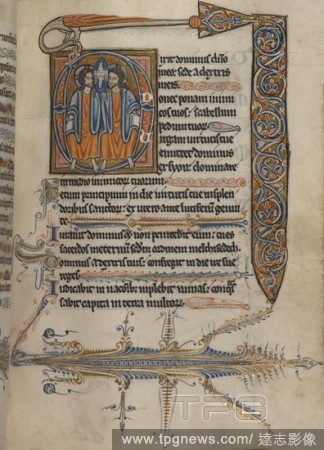 ixit dominus dño
meo: sede a dextris
meis
onec ponam inimi
cos tuos: scabellum
pedum tuor
irgam uirtutis tue
emittet dominus
ex syon: dominare
in medio inimicor tuorum
ecum principium in die uirtutis tue in splen
doribus sanctor: ex utero ante luciferum genui
te
Iurauit dominus et non penitebit eum: tu es
sacerdos in eternum sedm ordinem melchisedech
ominus a dextris tuis: confregit in die ire sue
reges
Iudicabit in implebit ruinas:
sabit capita in terra multor
TPG
www.tpgnews.com/ 達志影像